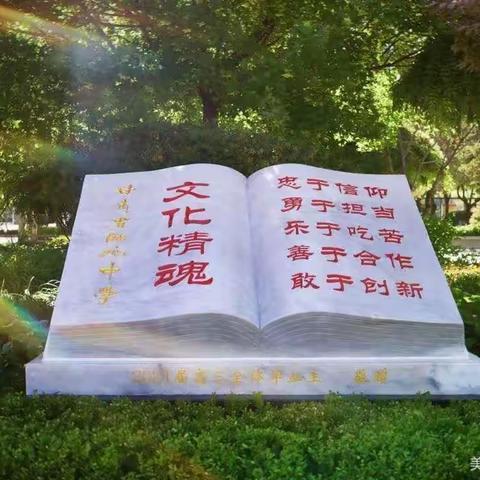 文化精魂
忠于信仰
勇于担当
乐于吃苦
善于合作
敢于创新
届高三全体毕业生 敬赠
美